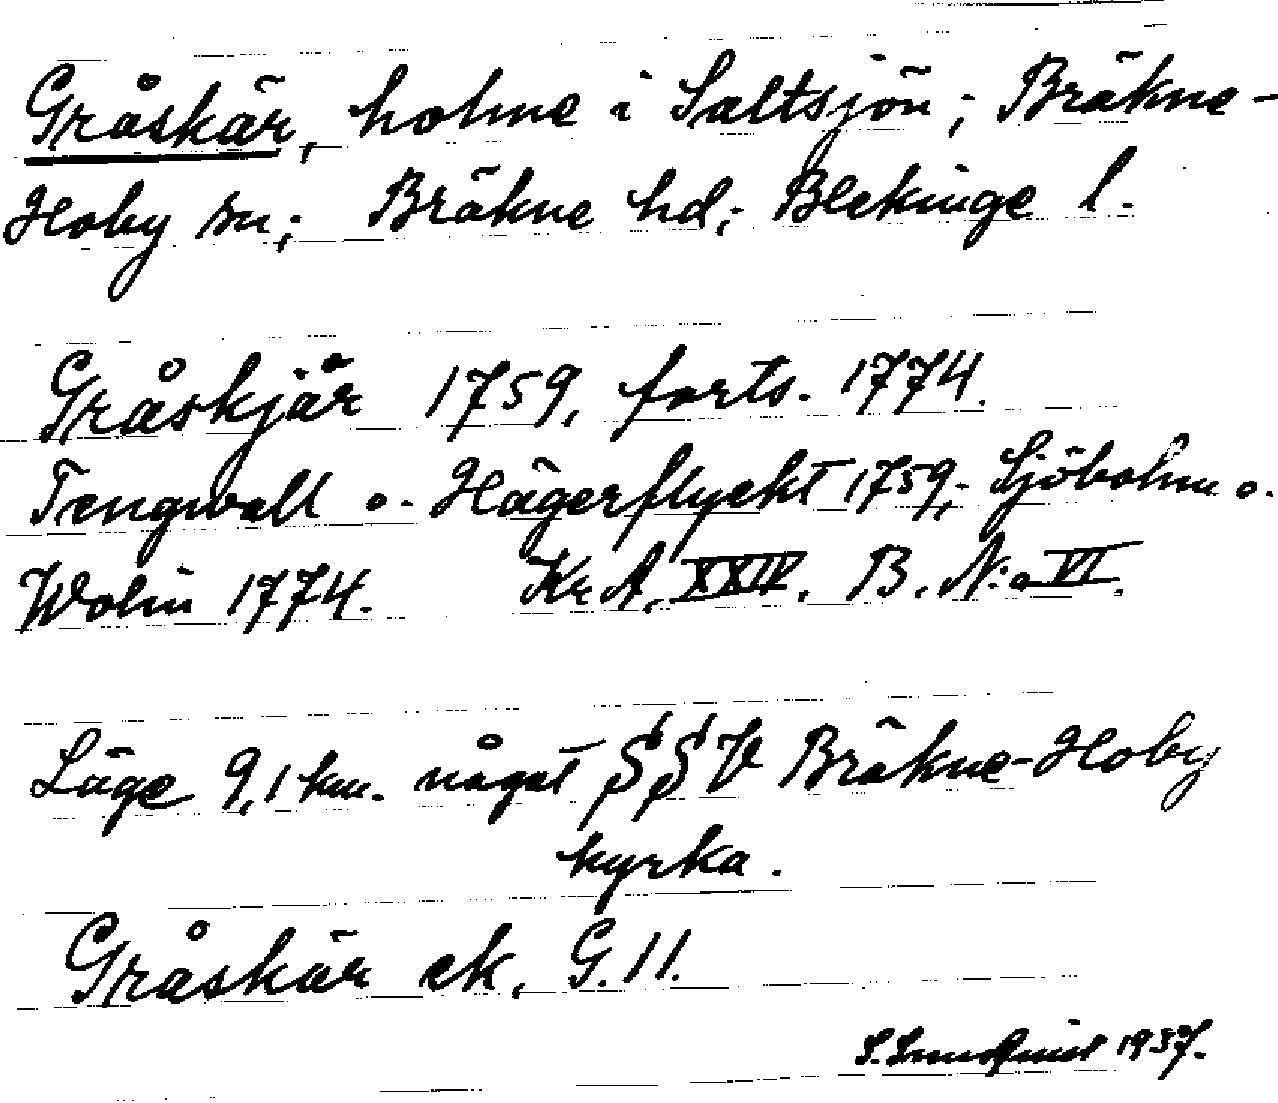 Gråskär, holme i Saltsjön; Bräkne-
Hoby sn; Bräkne hd; Blekinge l.
Gråskjär 1759, forts. 1774.
Tengwall o. Hägerflycht 1759; Sjöbohm o.
Wolin 1774. Kr. A. XXIV. B. N:o VI.
Läge 9,1 km. något SSV Bräkne-Hoby
kyrka.
Gråskär ek. G.11.
S. 1937.